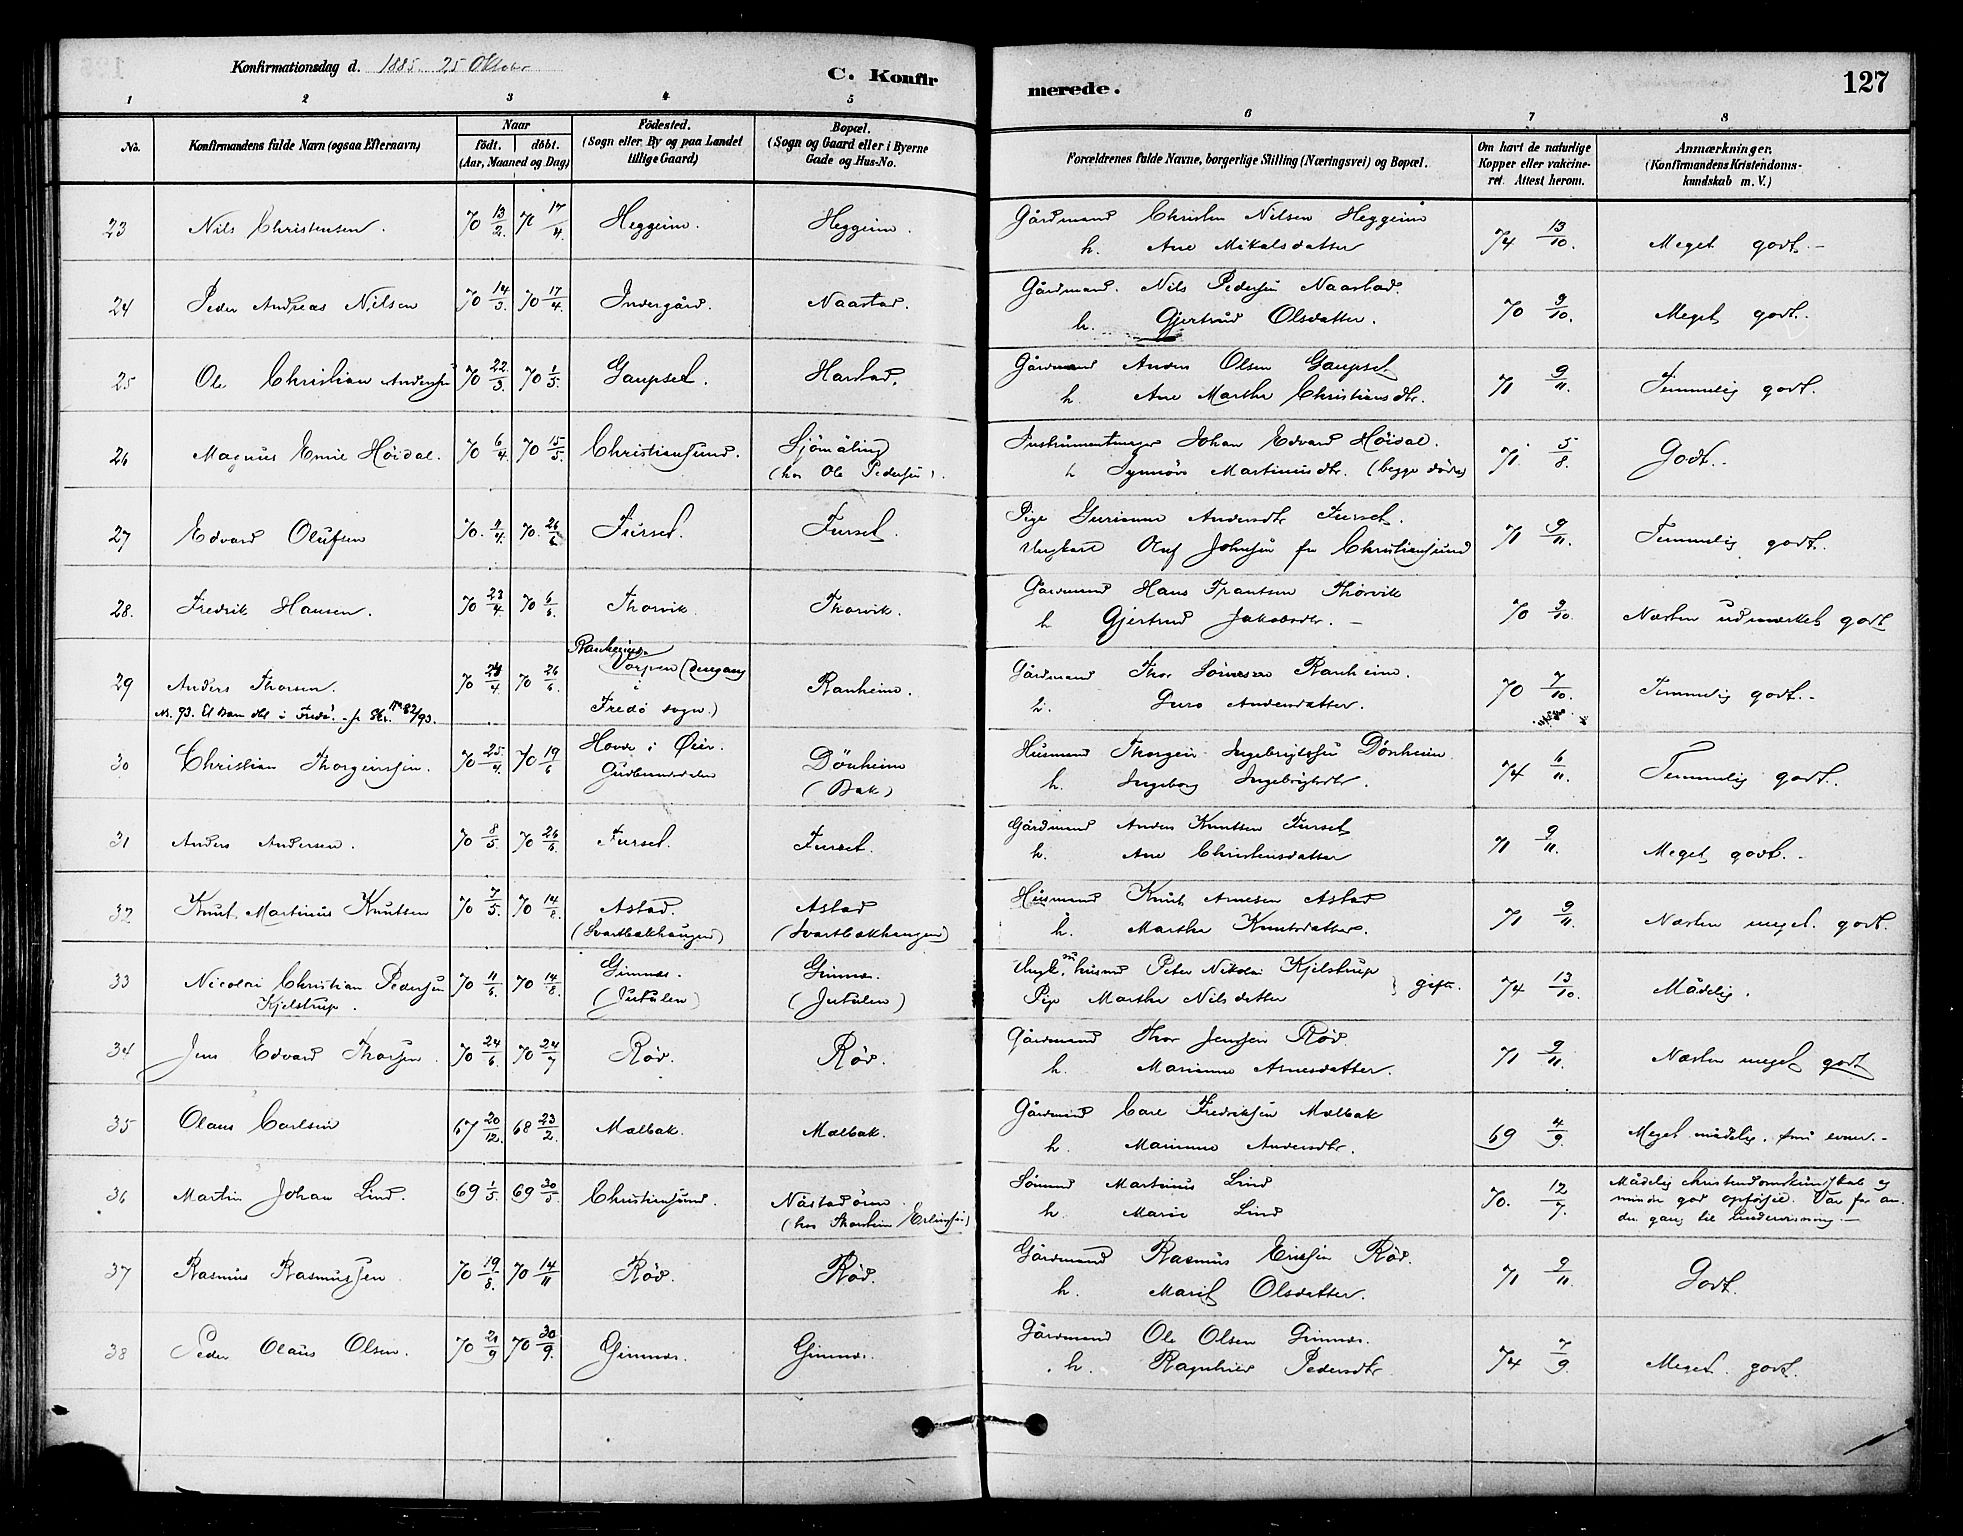 Konfirmationsdag d. 1885. 25 Oktober
C. Konfirmerede.
127
1 2 3 4 5 6 7 8
No.
Konfirmandens fulde Navn (ogsaa Efternavn)
Naar
födt. döbt.
(Aar, Maaned og Dag)
Födested.
(Sogn eller By og paa Landet
tillige Gaard)
Bopæl.
(Sogn og Gaard eller i Byerne
Gade og Hus-No.
Forældrenes fulde Navne, borgerlige Stilling (Næringsvei) og Bopæl.
Om havt de naturlige
Kopper eller vakcine-
ret. Attest herom.
Anmærkninger.
(Konfirmandens Kristendoms-
kundskab m. V.)
23 Nils Christensen. 70 13/2. 70 17/4. Heggeim. Heggeim. Gårdmand Christen Nilsen Heggeim 74 13/10. Meget godt.-
h. Ane Mikalsdatter
24 Peder Andreas Nilsen 70 14/3. 70 17/4. Indergård. Naastad. Gårdmand. Nils Pedersen Naastad. 70 9/10. Meget godt.
h. Gjertrud Olsdatter.
25 Ole Christian Andersen 70 22/3. 70 1/5. Gaupset. Harstad. Gårdmand Anders Olsen Gaupset 71 9/11. Temmelig godt.
h. Ane Martha Christiansdtr.
26 Magnus Emil Höidal. 70 6/4. 70 15/5. Christiansund. Sjömæling
(hos Ole Pedersen). Instrumentmager Johan Edvard Höidal. 71. 5/8. Godt.-
h Synnöv Martinusdtr. (begge döde)
27 Edvard Olufsen 70. 4/4. 70. 26/6. Furset. Furset. Pige Gurianna Andersdtr Furset. 71 9/11. Temmelig godt.
Ungkarl Oluf Johnsen fra Christiansund
28. Fredrik Hansen. 70 23/4. 70 6/6. Thorvik. Thorvik. Gårdmand Hans Frantsen Thorvik 70 9/10. Næsten udmærket godt
h Gjertrud Jakobsdtr. -
29 Anders Thorsen. 70 24/4. 70 26/6. Ranheim.
Vorpen (dengang
i
Fredö sogn.) Ranheim. Gårdmand Thor Sörensen Ranheim. 70 7/10. Temmelig godt.-
h. Guro Andersdatter.
30 Christian Thorgeirssen. 70 25/4. 70 19/6 Hove i Öier.
Gudbrandsdalen Dönheim
(Bak) Husmand Thorgeir Ingebrigtsen Dönheim 74 6/11. Temmelig godt.
h. Ingeborg Ingebrigtsdtr.
31 Anders Andersen. 70 8/5. 70 26/6. Furset. Furset. Gårdmand Anders Knutsen Furset 71 9/11. Meget godt.-
h. Ane Christensdatter
32 Knut Martinus Knutsen 70 7/5. 70 14/8. Astad.
(Svartbakhaugen) Astad
(Svartbakhaugen) Husmand Knut Arnesen Astad 71 9/11. Næsten meget godt.
h. Martha Knutsdatter.
33 Nicolai Christian Pedersen
Kjelstrup. 70 11/6. 70 14/8. Gimnæs.
(Jutulen) Gimnæs.
(Jutulen) Ungk. husmd Peter Nikolai Kjelstrup } gift. 74 13/10. Mådelig.
Pige Martha Nilsdatter
34 Jens Edvard Thorsen. 70 24/6. 70 24/7 Röd. Röd. Gårdmand Thor Jenssen Röd. 71 9/11. Næsten meget godt
h. Marianne Arnesdatter.
35 Olaus Carlsen 67 20/12. 68 23/2. Mælbak. Mælbak. Gårdmand Carl Fredriksen Mælbak 69 4/9. Meget mådelig. små evner.-
h. Marianne Andersdtr.
36 Martin Johan Lind. 69 1/5. 69 30/5. Christiansund. Nåstadören.
(hos Thorstein Erlingsen) Sömand Martinus Lind 70. 12/7. Mådelig christendomskundskab og
mindre god opförsel. Var for an-
den gang til Undervisning.-
h. Marie Lind
37 Rasmus Rasmussen. 70 19/8. 70 14/11 Röd. Röd. Gårdmand Rasmus Ericksen Röd. 71 9/11. Godt.
h. Marit Olsdatter.
38 Peder Olaus Olsen. 70 21/9 70 30/9. Gimnæs. Gimnæs. Gårdmand Ole Olsen Gimnæs. 74 7/9. Meget godt.
h. Ragnhild Pedersdtr